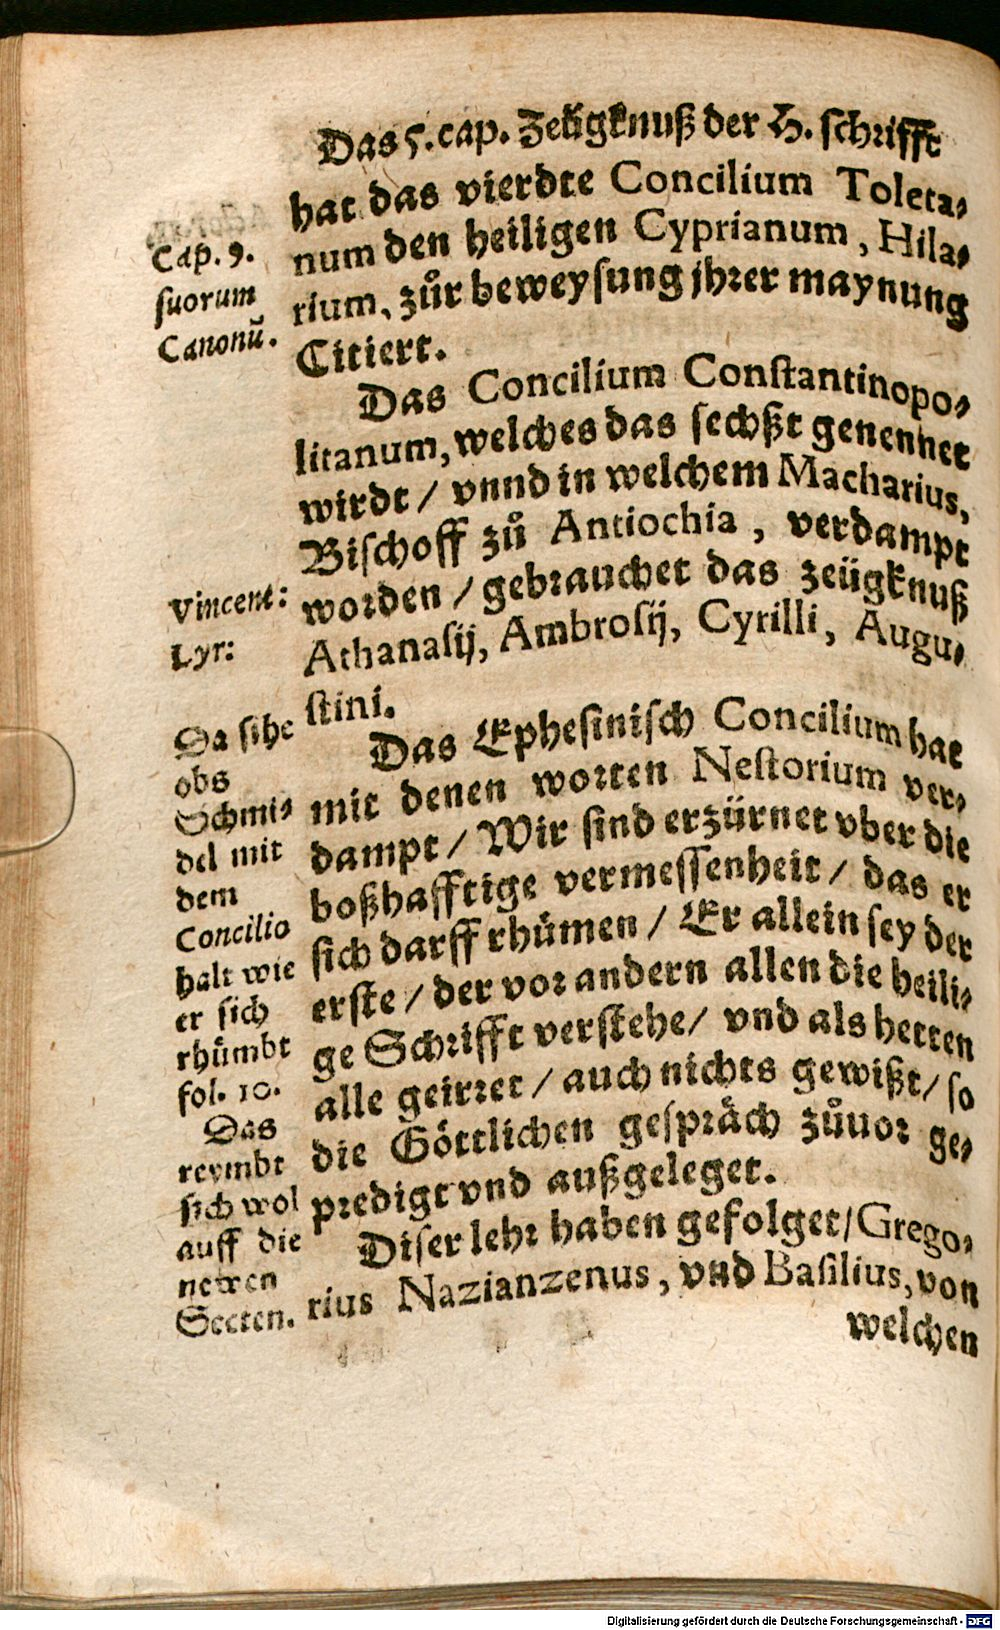 Das 5. cap. Zeügknuß der H. schrifft
hat das vierdte Concilium Toleta-
num den heiligen Cyprianum, Hila-
rium, zůr beweysung jhrer maynung
Citiert.
Cap. 9.
suorum
Canonũ.
Das Concilium Constantinopo-
litanum, welches das sechßt genennet
wirdt / vnnd in welchem Macharius,
Bischoff zů Antiochia, verdampt
worden / gebrauchet das zeügknuß
Athanasij, Ambrosij, Cyrilli, Augu-
stini.
Vincent:
Lyr:
Das Ephesinisch Concilium hat
mit denen worten Nestorium ver-
dampt / Wir sind erzürnet vber die
boßhafftige vermessenheit / das er
sich darff rhümen / Er allein sey der
erste / der vor andern allen die heili-
ge Schrifft verstehe / vnd als hetten
alle geirret / auch nichts gewißt / so
die Göttlichen gespräch zůuor ge-
predigt vnd außgeleget.
Da sihe
obs
Schmi-
del mit
dem
Concilio
halt wie
er sich
rhümbt
fol. 10.
Das
reymbt
sich wol
auff die
newen
Secten.
Diser lehr haben gefolget / Grego-
rius Nazianzenus, vnd Basilius, von
welchen
Digitalisierung gefördert durch die Deutsche Forschungsgemeinschaft - DFG